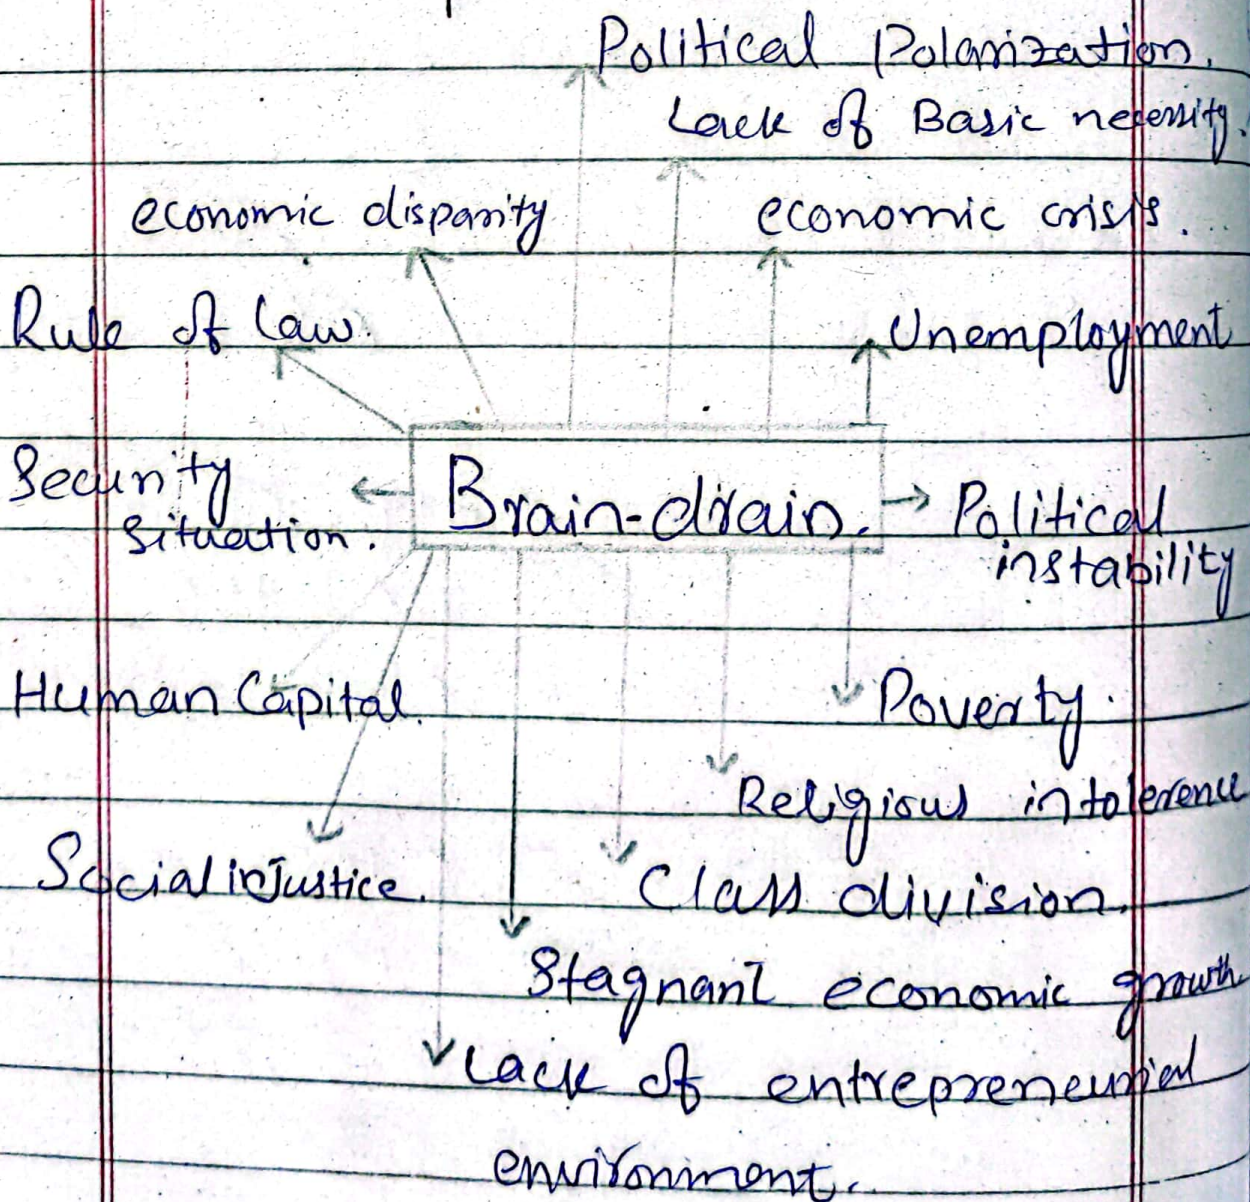 Political Polarization.
Lack of Basic necessity.
economic disparity
economic crisis.
Rule of law.
Unemployment
Security
situation.
Brain-drain.
Political
instability
Human Capital.
Poverty.
Religious intolerence
Social injustice.
Class division.
Stagnant economic growth
Lack of entrepreneurial
environment.